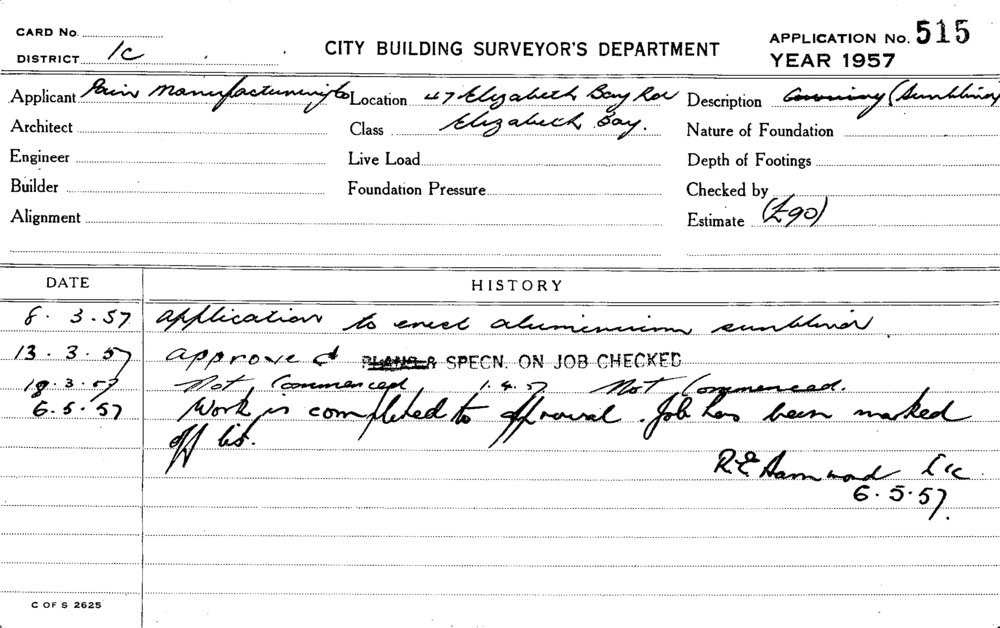 CARD No.
DISTRICT 1C
CITY BUILDING SURVEYOR'S DEPARTMENT
APPLICATION No. 515
YEAR 1957
Applicant Manufacturing Co Location 47 Elizabeth Bay Rd Description (Sunblind)
Architect Class Elizabeth Bay. Nature of Foundation
Engineer Live Load Depth of Footings
Builder Foundation Pressure Checked by
Alignment Estimate (£90)
DATE HISTORY
8. 3. 57 Application to erect aluminium sunblind
13. 3. 57 Approved PLANS & SPECN. ON JOB CHECKED
18. 3. 57 Not Commenced 1. 4. 57 Not Commenced.
6. 5. 57 Work is completed to approval. Job has been marked
off list.
R.E.
6. 5. 57.
C OF S 2625